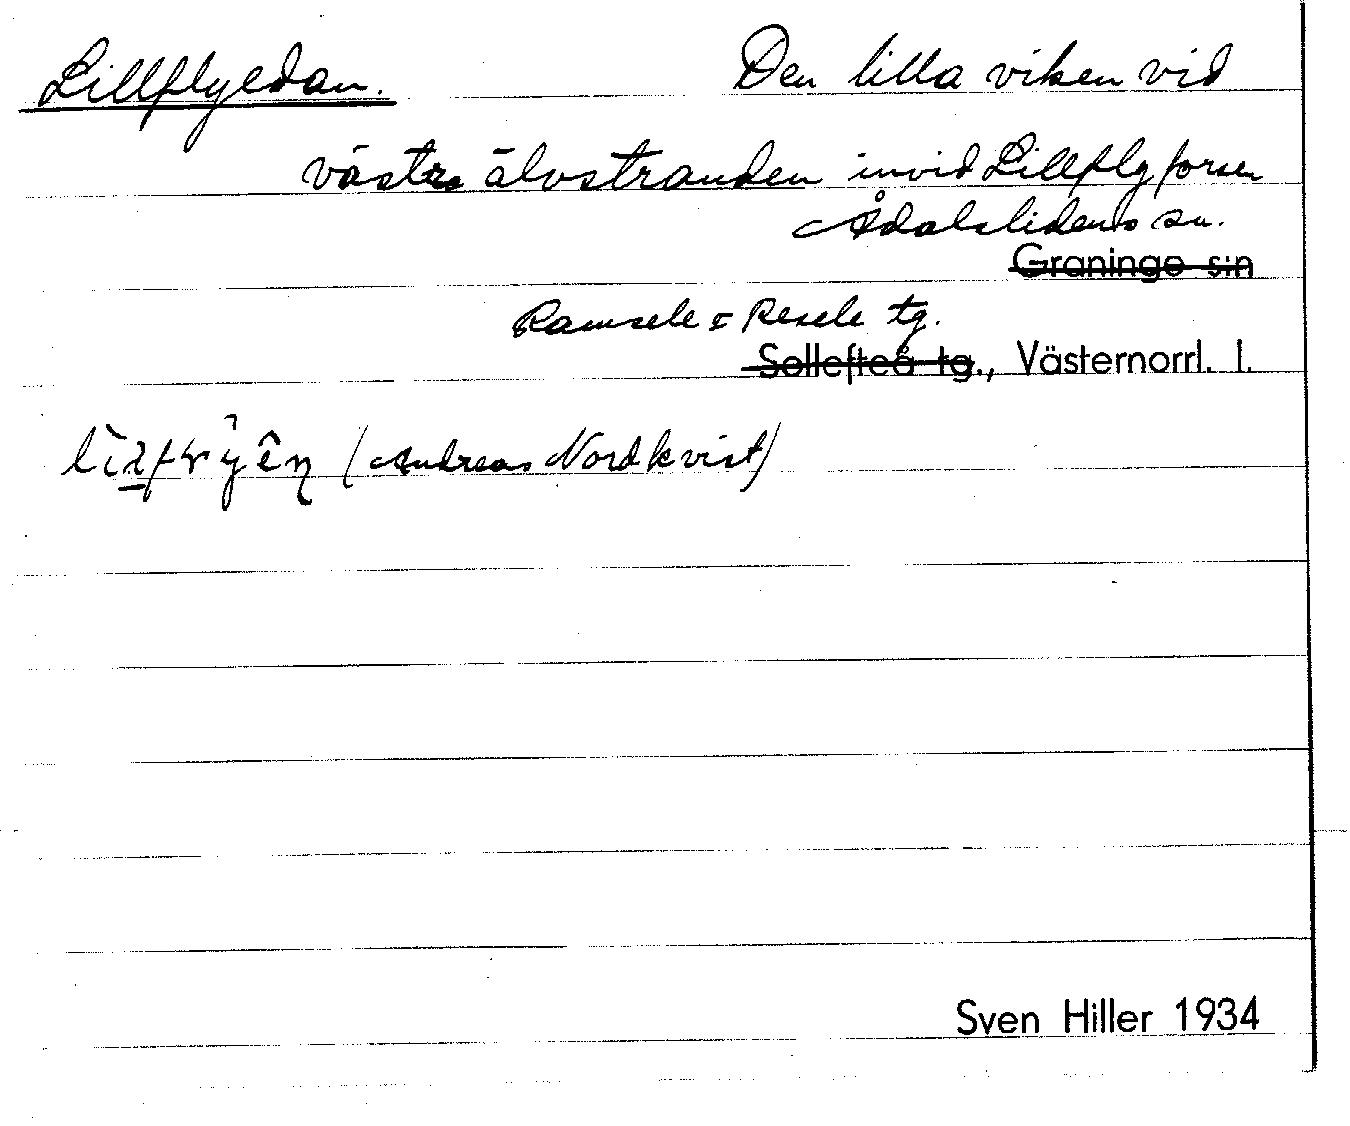 Lillflyedan. Den lilla viken vid
västra älvstranden invid Lillflyforsen
Ådalslidens sn.
Graninge s:n
Ramsele & Resele tg.
Sollefteå tg., Västernorrl. l.
(Andreas Nordkvist)
Sven Hiller 1934